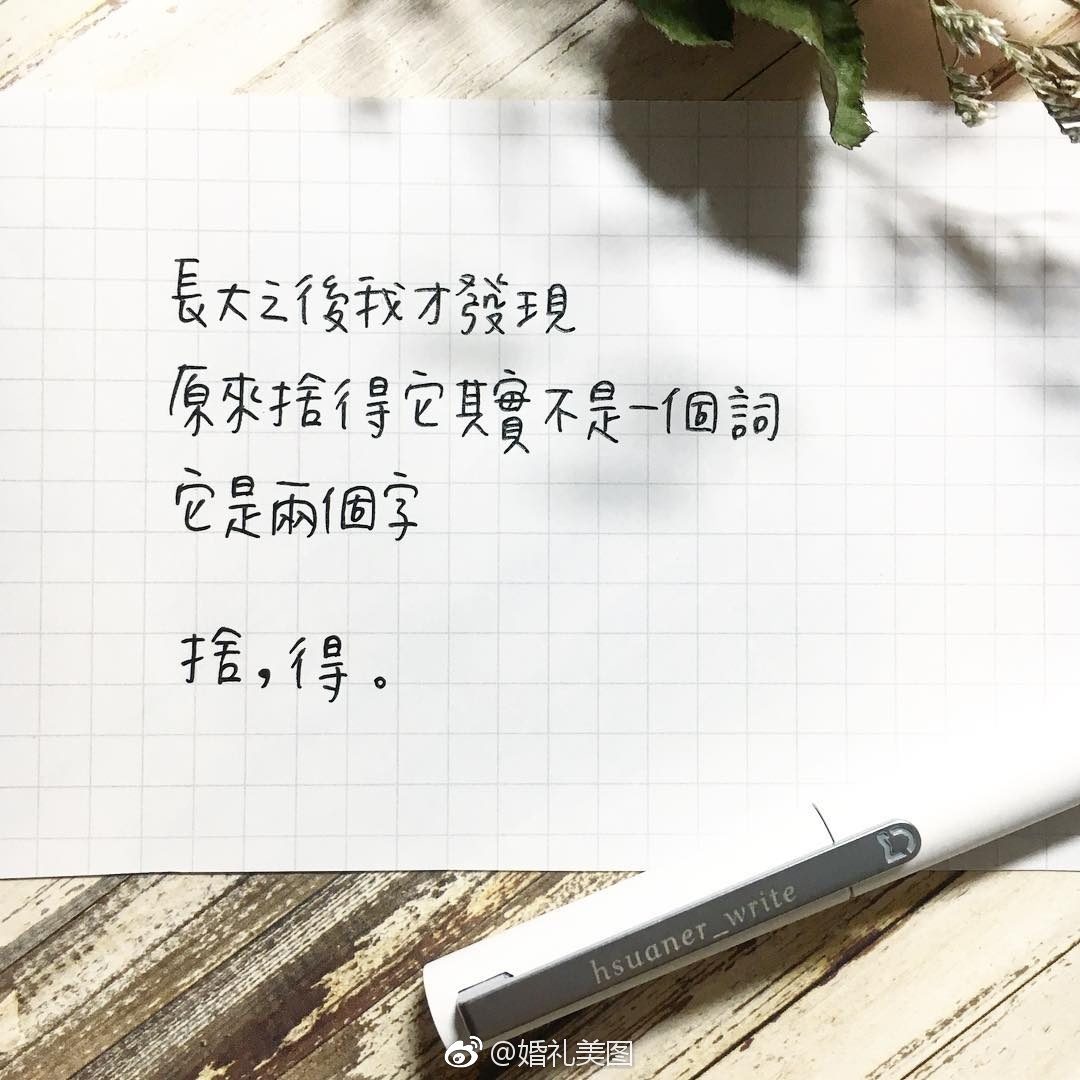 長大之後我才發現
原來捨得它其實不是一個詞
它是兩個字
捨，得。
hsuaner_write
@婚礼美图